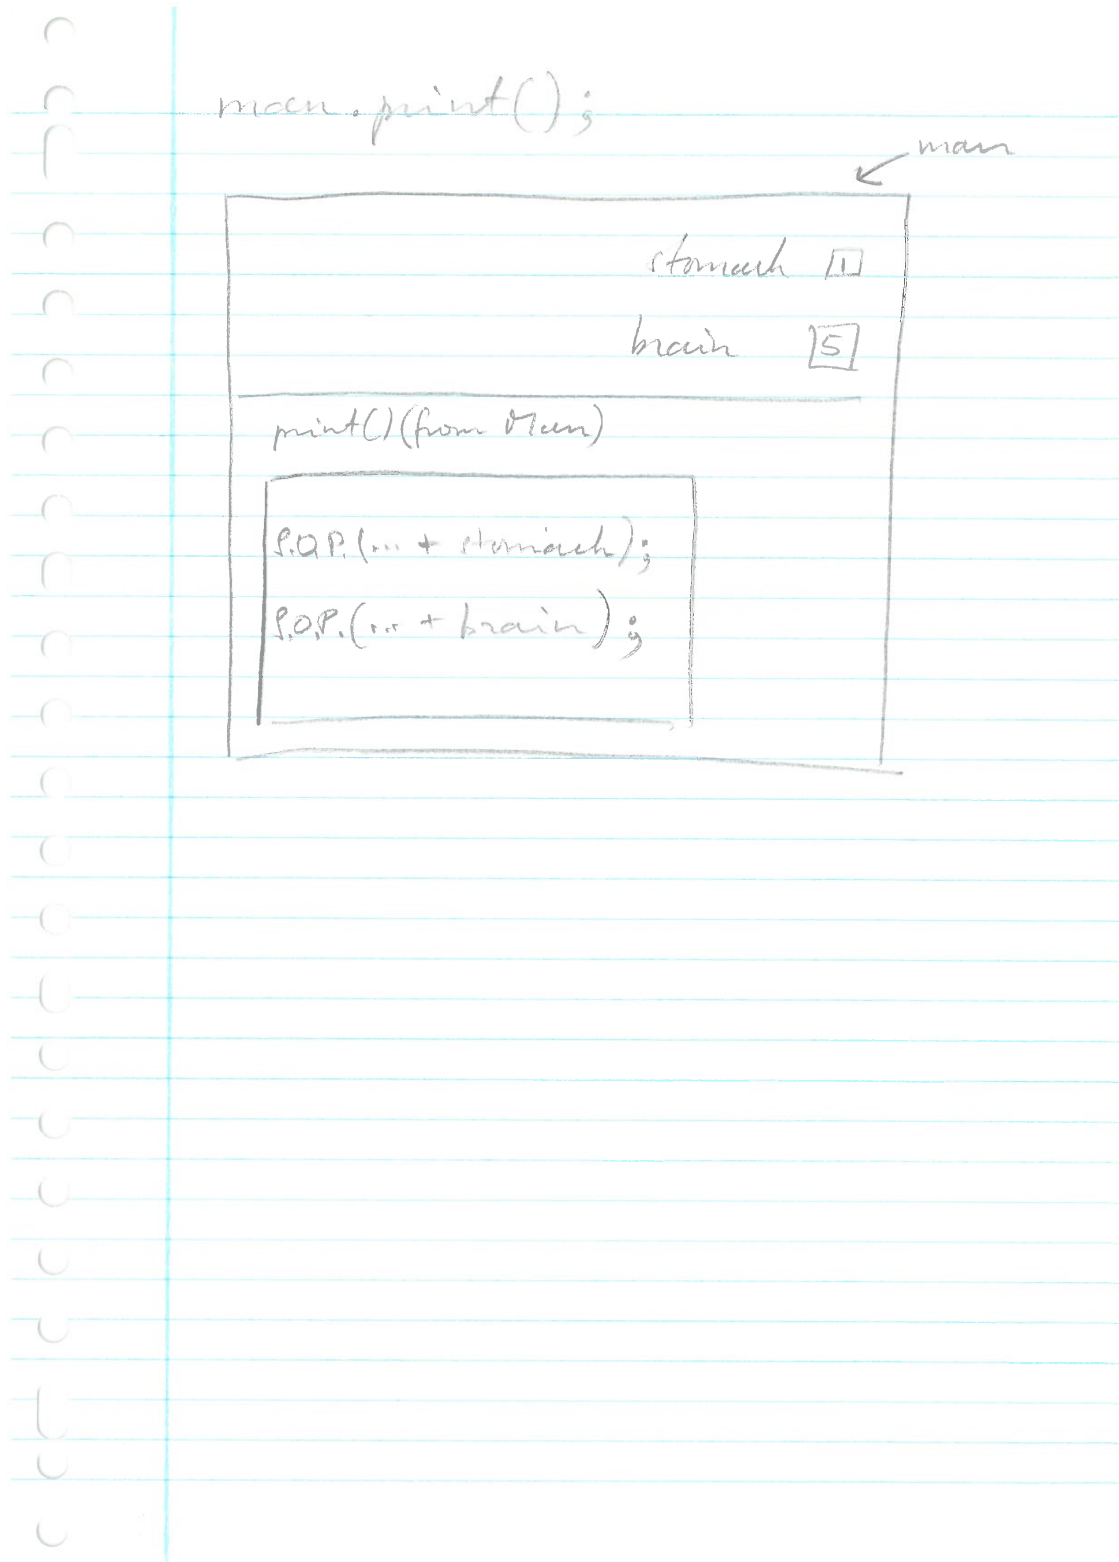 man.print();
man
stomach 1
brain 5
print() (from Man)
S.O.P.(... + stomach);
S.O.P.(... + brain);